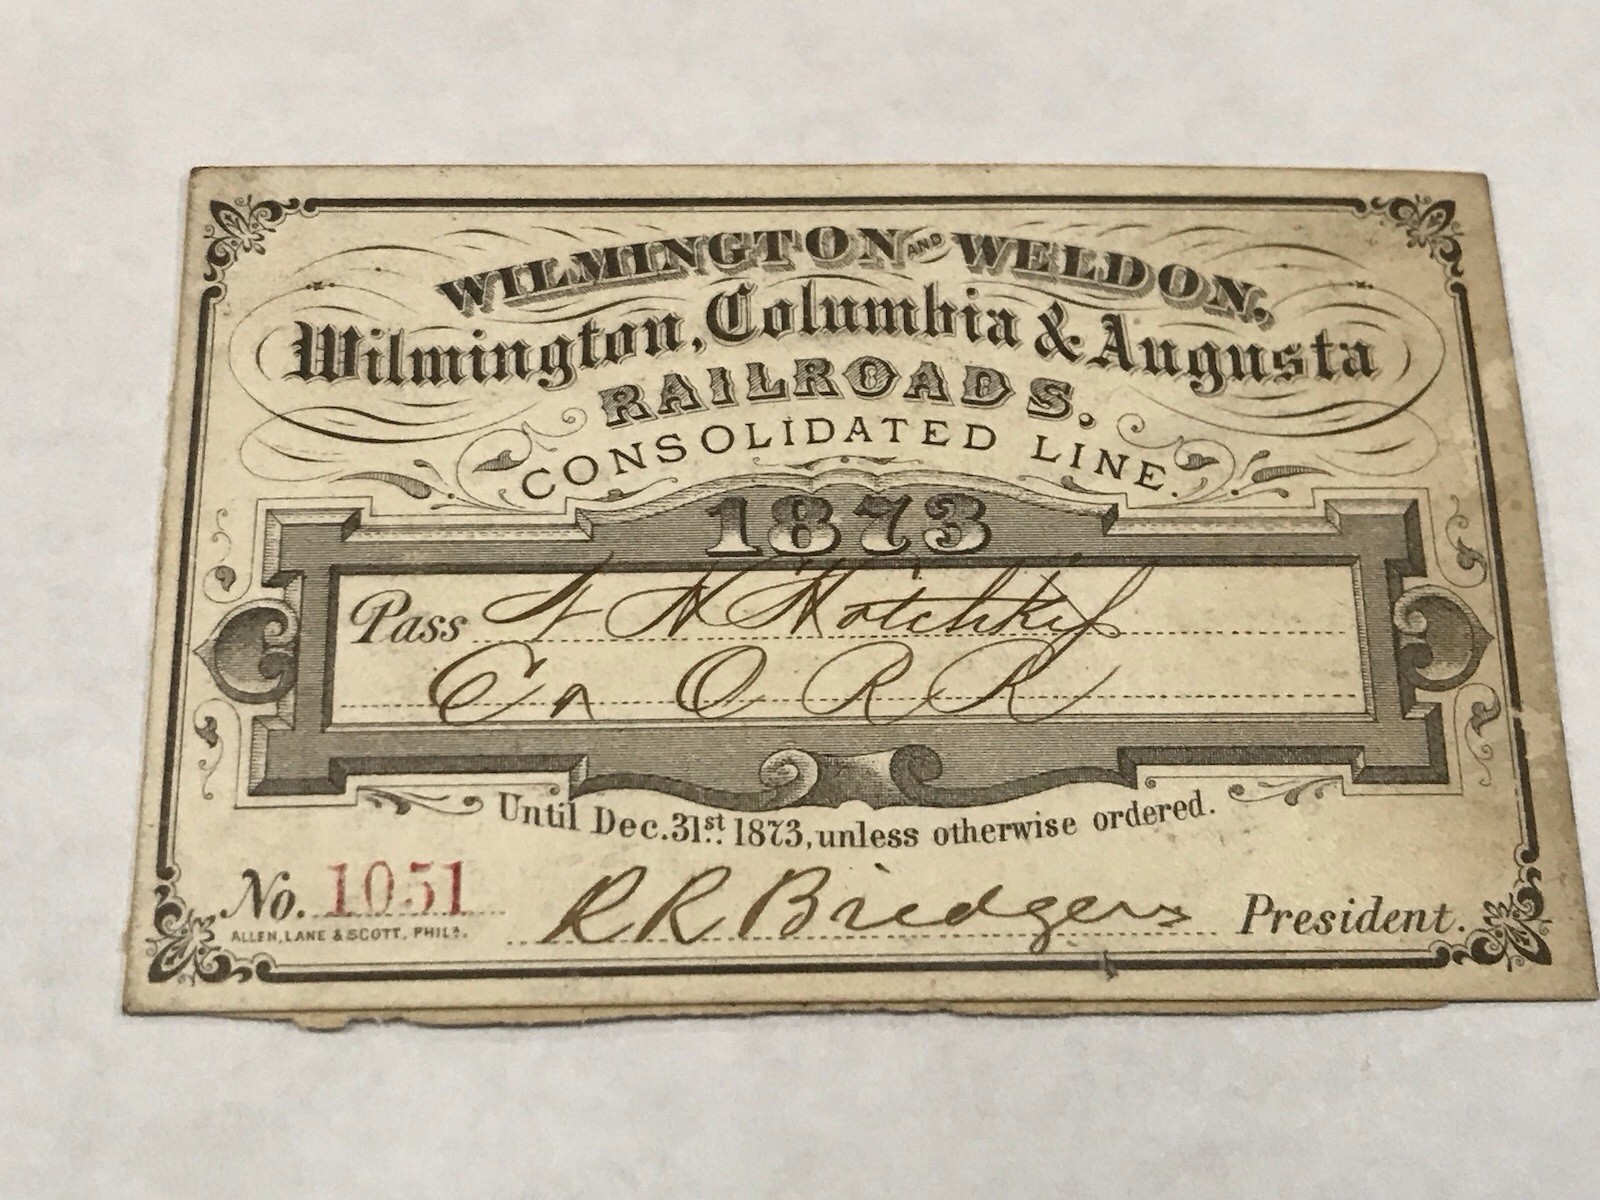 WILMINGTON AND WELDON,
Wilmington, Columbia & Augusta
RAILROADS.
CONSOLIDATED LINE.
1873
Pass H Hotchkiss
O R R
Until Dec. 31st 1873, unless otherwise ordered.
No. 1051
ALLEN, LANE & SCOTT, PHILA.
R R Bridgers President.